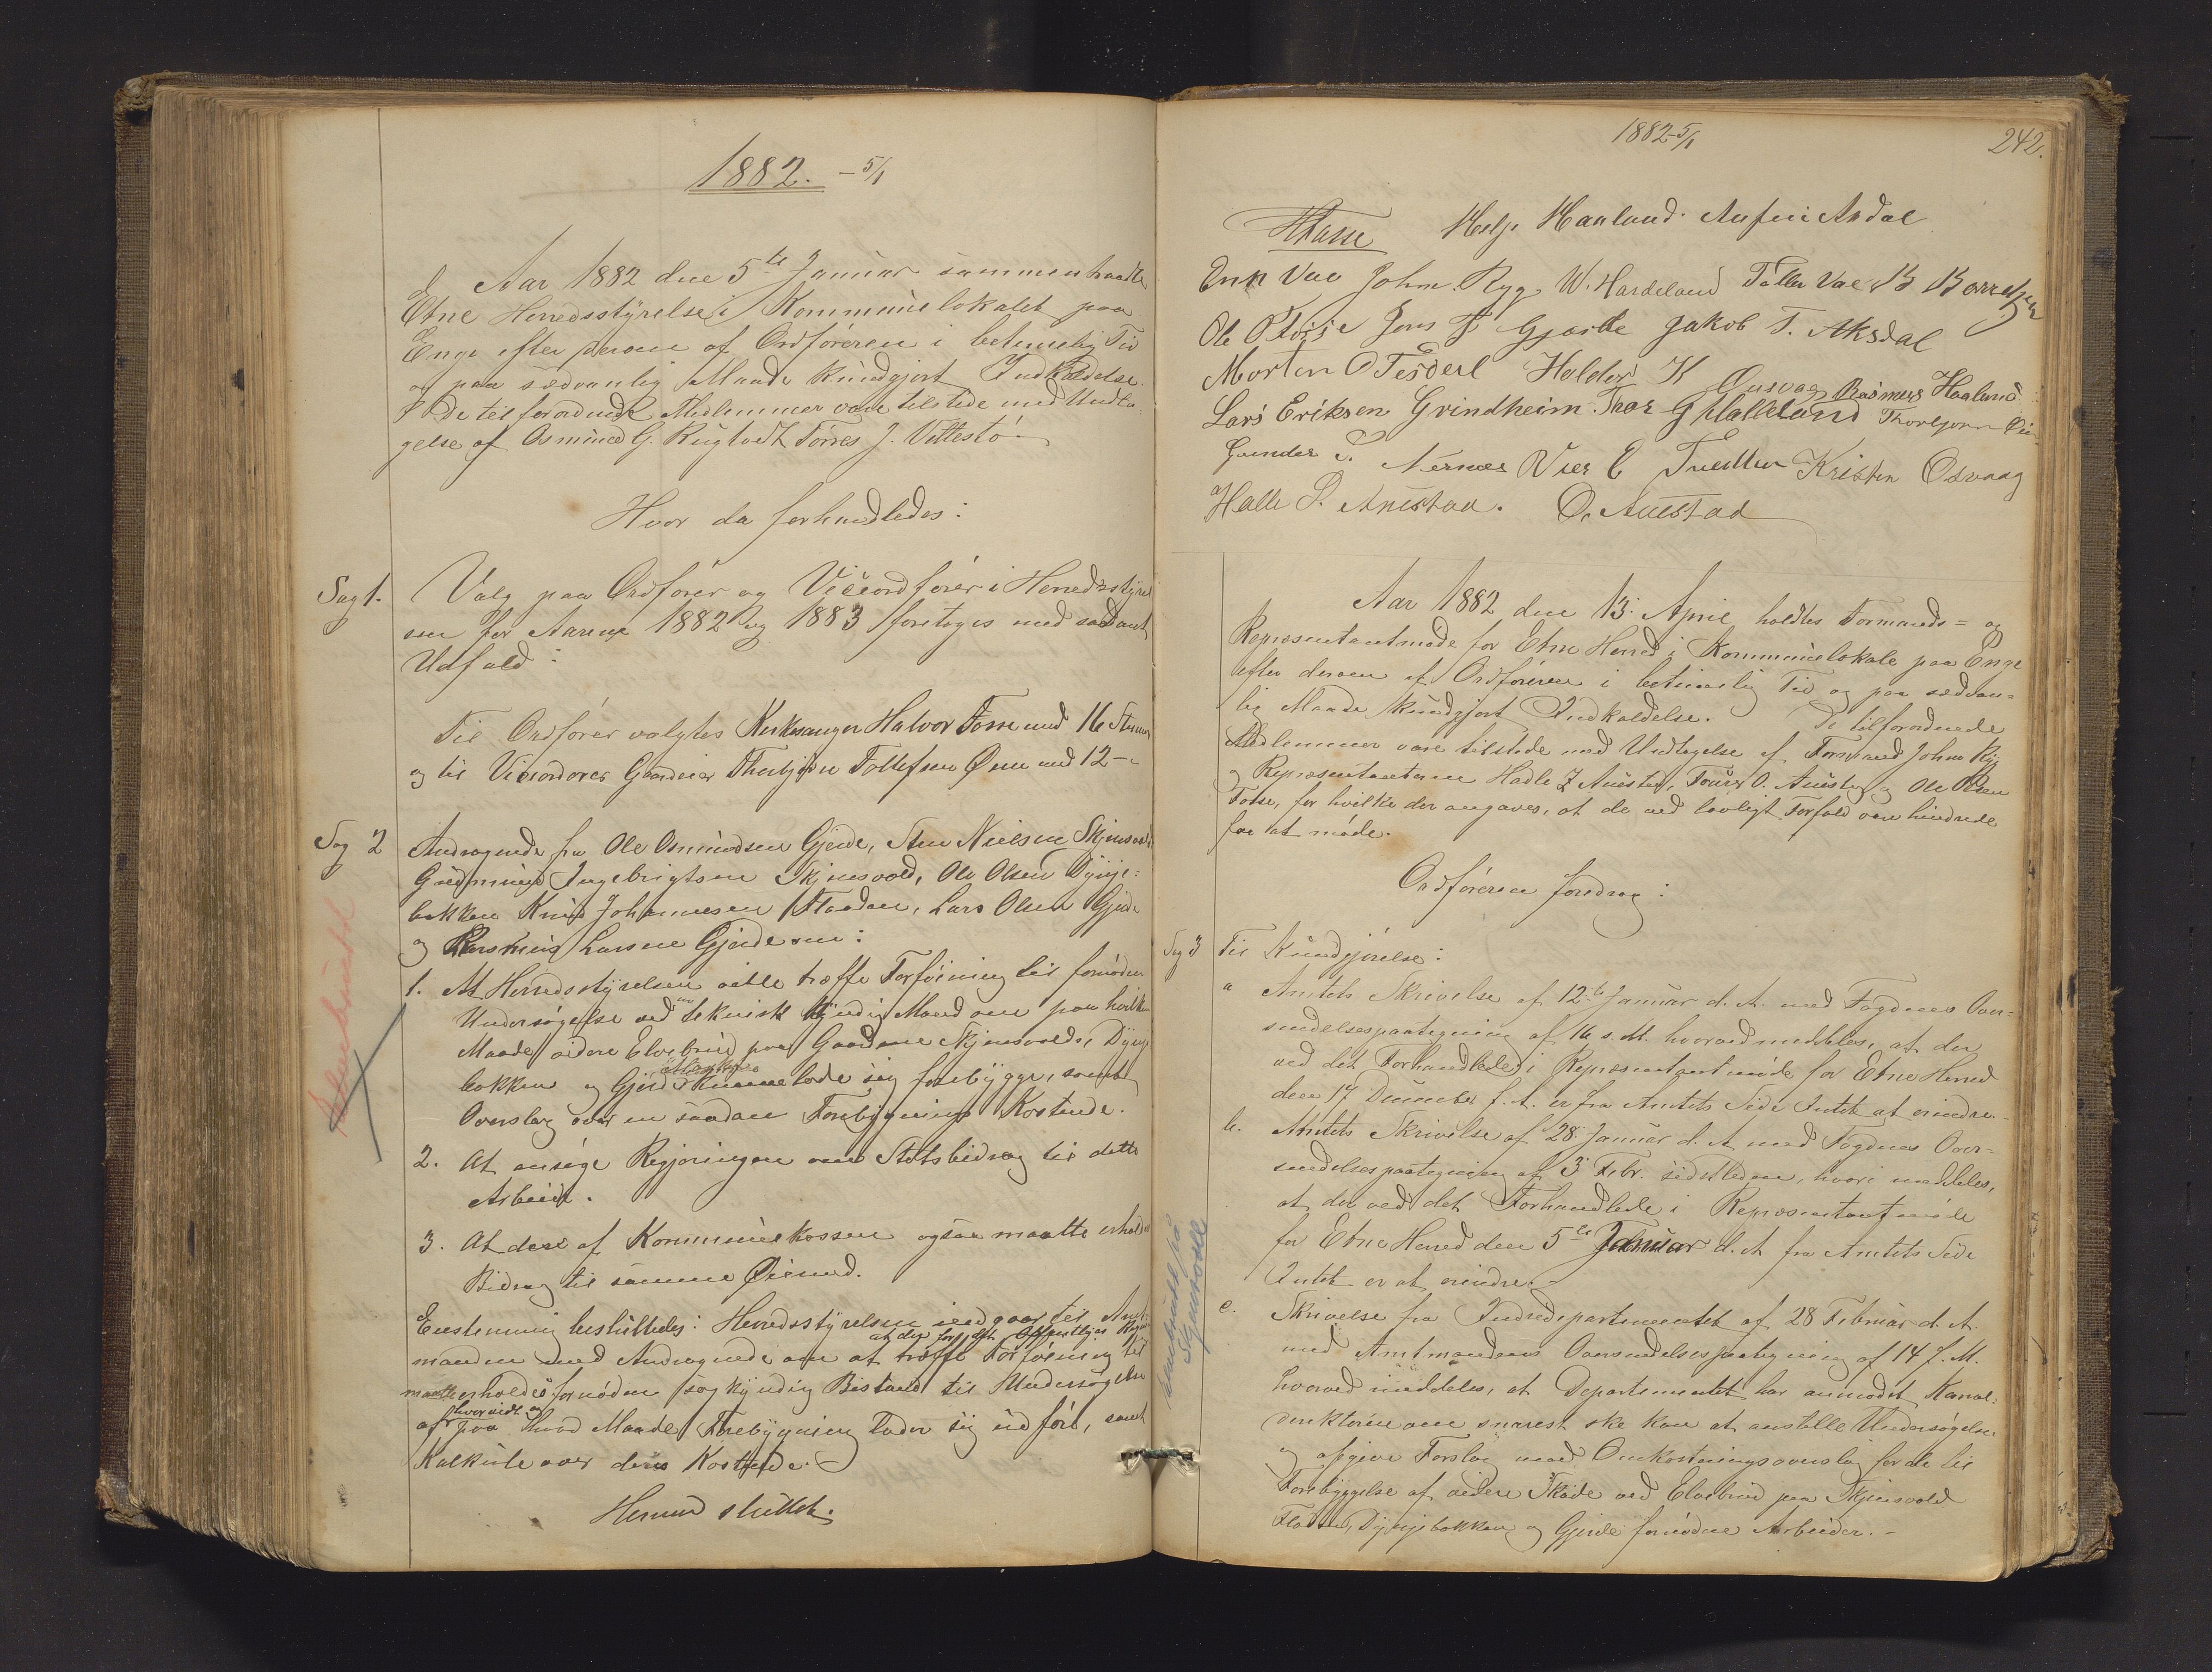 1882. – 5/1
Aar 1882 den 5te Januar sammentraadte
Etne Herredsstyrelse i Kommunelokalet paa
Enge efter derom af Ordføreren i betimelig Tid
og paa sædvanlig Maade kundgjort Indkaldelse.
De tilforordnede Medlemmer vare tilstede med Undta-
gelse af Osmund G. Rugtvedt Tørres J. Vettestø
Hvor da forhandledes:
Sag 1. Valg paa Ordfører og Viceordfører i Herredsstyrel
sen for Aarene 1882 og 1883 foretoges med saadant
Udfald:
Til Ordfører valgtes Kirkesanger Halvor Fosse med 16 Stemmer
og til Viceordfører Gaardeier Thorbjørn Tollefsen Øien med 12 –
Sag 2 Andragende fra Ole Osmundsen Gjerde, Sten Nielsen Skjensvold
Gudmund Ingebrigtsen Skjensvold, Ole Olsen Dynje-
bakken Knud Johannesen Flaaden, Lars Olsen Gjerde
og Rasmus Larsen Gjerde om:
1. At Herredsstyrelsen vilde træffe Forføining til fornøden
Undersøgelse ved en teknisk kyndig Mand om paa hvilken
Maade videre Elvebrud paa Gaardene Skjensvold, Dynje
bakken og Gjerde kunne lade sig forebygge, samt
Overslag over en saadan Forebygnings Kostende.
2. At ansøge Regjeringen om Statsbidrag til dette
Arbeide.
3. At der af Kommunekassen ogsaa maatte erholdes
Bidrag til samme Øiemed.
Enstemmig besluttedes: Herredsstyrelsen indgaar til Amt-
manden med Andragende om at træffe Forføining til
at der for det Offentliges Regning
maatte erholdes fornøden sagkyndig Bistand til Undersøgelse
af hvorvidt og
paa hvad Maade Forebygning lader sig udføre, samt
Kalkule over dens Kostende.
Hermed sluttet.
Elvebrudd
1882 5/1
242.
HFosse Helje Haaland. Anfin Ardal
Enn Vae John. Ryg W. Hardeland Tollev Vae B Børretzen
Ole Ploise Jens J Gjærde Jakob T. Aksdal
Morten O Tesdal Haldor K Øusvaag Rasmus Haaland
Lars Eriksen Grindheim Thor G Halleland Thorbjørn Øien
Gunder S. Nernæs Vier E Tvedten Kristen Osvaag
Halle P. Austad. O. Austad
Aar 1882 den 13. April holdtes Formands- og
Repræsentantmøde for Etne Herred i Kommunelokale paa Enge
efter derom af Ordføreren i betimelig Tid og paa sædvan-
lig Maade kundgjort Indkaldelse. De tilforordnede
Medlemmer vare tilstede med Undtagelse af Formand Johne Ryg
og Repræsentanterne Hadle J Austad, Tørres O. Austad og Ole Olsen
Fosse, for hvilke der angaves, at de ved lovligt Forfald vare hindrede
for at møde.
Ordføreren foredrog:
Sag 3 Til Kundgjørelse:
a Amtets Skrivelse af 12te Januar d. A. med Fogdens Over-
sendelsespaategning af 16 s. M. hvorved meddeles, at der
ved det Forhandlede i Repræsentantmøde for Etne Herred
den 17 December f. A. er fra Amtets Side Intet at erindre.
b. Amtets Skrivelse af 28. Januar d. A med Fogdens Over-
sendelsespaategning af 3 Febr. sidstleden, hvori meddeles,
at der ved det Forhandlede i Repræsentantmøde
for Etne Herred den 5te Januar d. A fra Amtets Side
Intet er at erindre.
c. Skrivelse fra Indredepartementet af 28 Februar d. A.
med Amtmandens Oversendelsespaategning af 14 f. M.
hvorved meddeles, at Departementet har anmodet Kanal-
direktøren om snarest ske kan at anstille Undersøgelse
og afgive Forslag med Omkostningsoverslag for de til
Forebyggelse af videre Skade ved Elvebrud paa Skjensvold
Flaaden, Dynjebakken og Gjerde fornødne Arbeider. –
Elvebrudd på
Skjensvoll